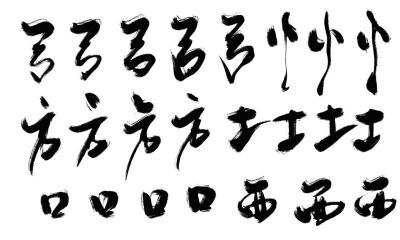 言言言言言忄忄忄
方方方方土土土土
口口口口西西西